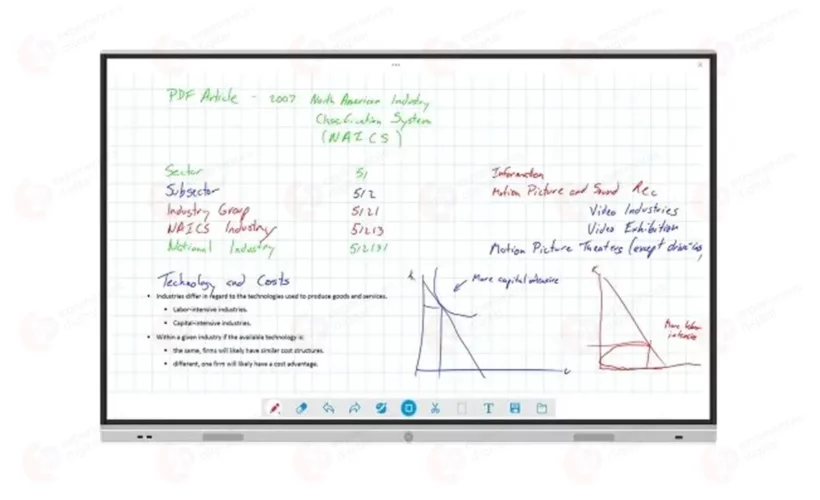 PDF Article - 2007 North American Industry
Classification System
(NAICS)
Sector 51 Information
Subsector 512 Motion Picture and Sound Rec
Industry Group 5121 Video Industries
NAICS Industry 51213 Video Exhibition
National Industry 512131 Motion Picture Theaters (except drive-ins)
Technology and Costs
• Industries differ in regard to the technologies used to produce goods and services.
• Labor-intensive industries.
• Capital-intensive industries.
• Within a given industry if the available technology is:
• the same, firms will likely have similar cost structures.
• different, one firm will likely have a cost advantage.
K
More capital intensive
L
K
More labor
intensive
T